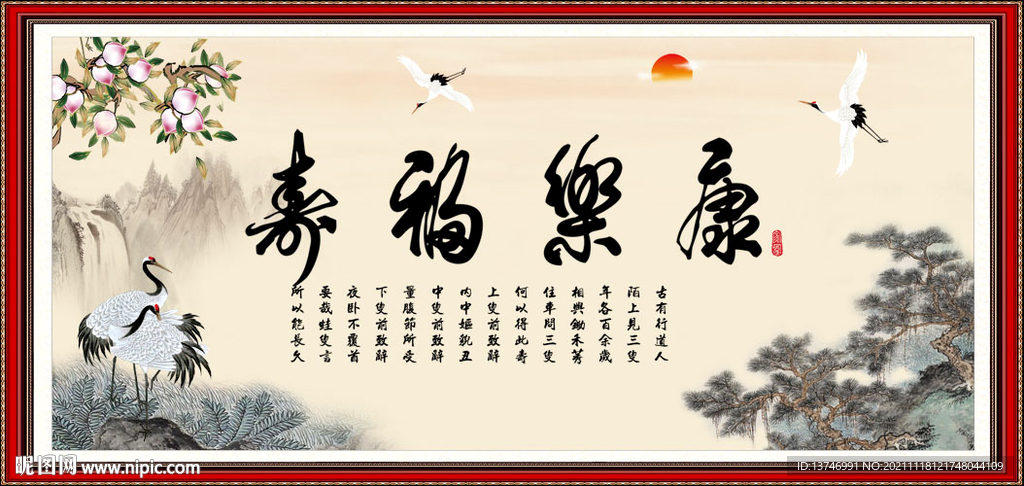 康樂福寿
古有行道人
陌上見三叟
年各百余歲
相與鋤禾莠
住車問三叟
何以得此壽
上叟前致辭
内中嫗貌丑
中叟前致辭
量腹節所受
下叟前致辭
夜卧不覆首
要哉蛙叟言
所以能長久
昵图网 www.nipic.com
ID:13746991 NO:20211118121748044109